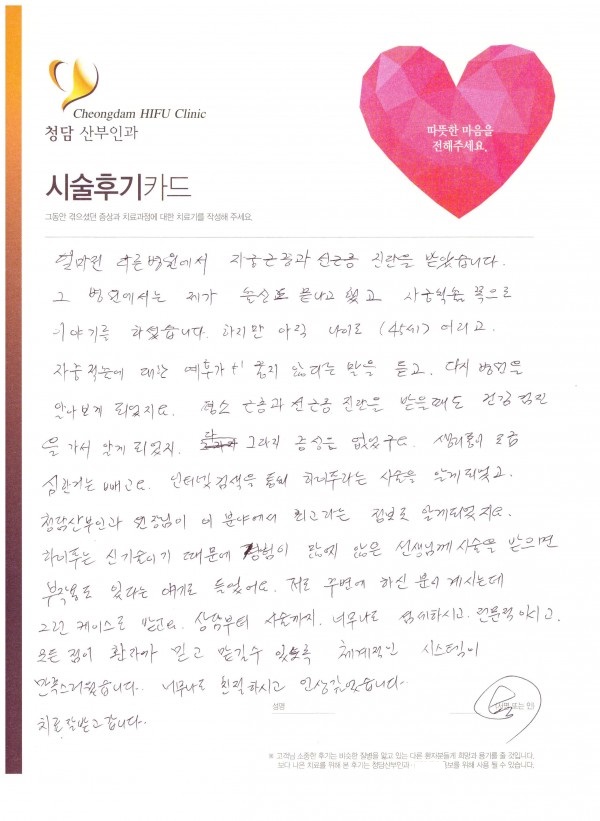 Cheongdam HIFU Clinic
청담 산부인과
따뜻한 마음을
전해주세요.
시술후기카드
그동안 겪으셨던 증상과 치료과정에 대한 치료기를 작성해 주세요.
얼마전 다른병원에서 자궁근종과 선근종 진단을 받았습니다.
그 병원에서는 제가 출산도 끝나고 했고 자궁적출 쪽으로
이야기를 하였습니다. 하지만 아직 나이도 (45세) 어리고.
자궁적출에 대한 예후가 좋지 않다는 말을 듣고. 다시 병원을
알아보게 되었지요. 평소 근종과 선근종 진단을 받을때도 건강검진
을 가서 알게 되었지. 그다지 증상은 없었구요. 생리통이 조금
심한거는 빼고요. 인터넷 검색을 통해 하이푸라는 시술을 알게되었고.
청담산부인과 원장님이 이 분야에서 최고라는 정보도 알게되었지요.
하이푸는 신기술이기 때문에 경험이 많지 않은 선생님께 시술을 받으면
부작용도 있다는 얘기도 들었어요. 저도 주변에 하신 분이 계시는데
그런 케이스도 봤고요. 상담부터 시술까지. 너무나도 섬세하시고. 전문적이시고.
모든 점이 환자가 믿고 맡길수 있도록 체계적인 시스템이
만족스러웠습니다. 너무나도 친절하시고 인상깊었습니다.
치료 잘받고 갑니다.
성명
(서명 또는 인)
※ 고객님 소중한 후기는 비슷한 질병을 앓고 있는 다른 환자분들께 희망과 용기를 줄 것입니다.
보다 나은 치료를 위해 본 후기는 청담산부인과 보를 위해 사용 될 수 있습니다.